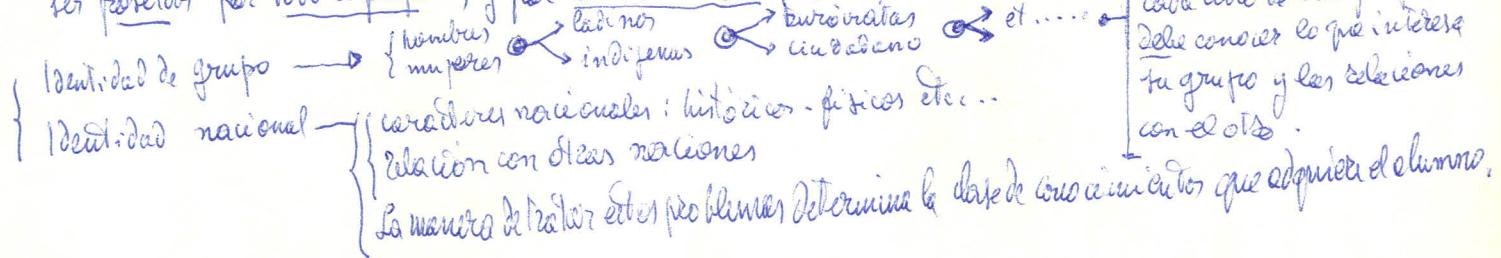 ser poseídos por todo
ladinos burócratas
Identidad de grupo { hombres indígenas ciudadano et..... debe conocer lo que interesa
mujeres su grupo y las relaciones
con el otro.
Identidad nacional caracteres nacionales: históricos - físicos etc...
relación con otras naciones
La manera de tratar estos problemas determina la clase de conocimientos que adquiere el alumno.